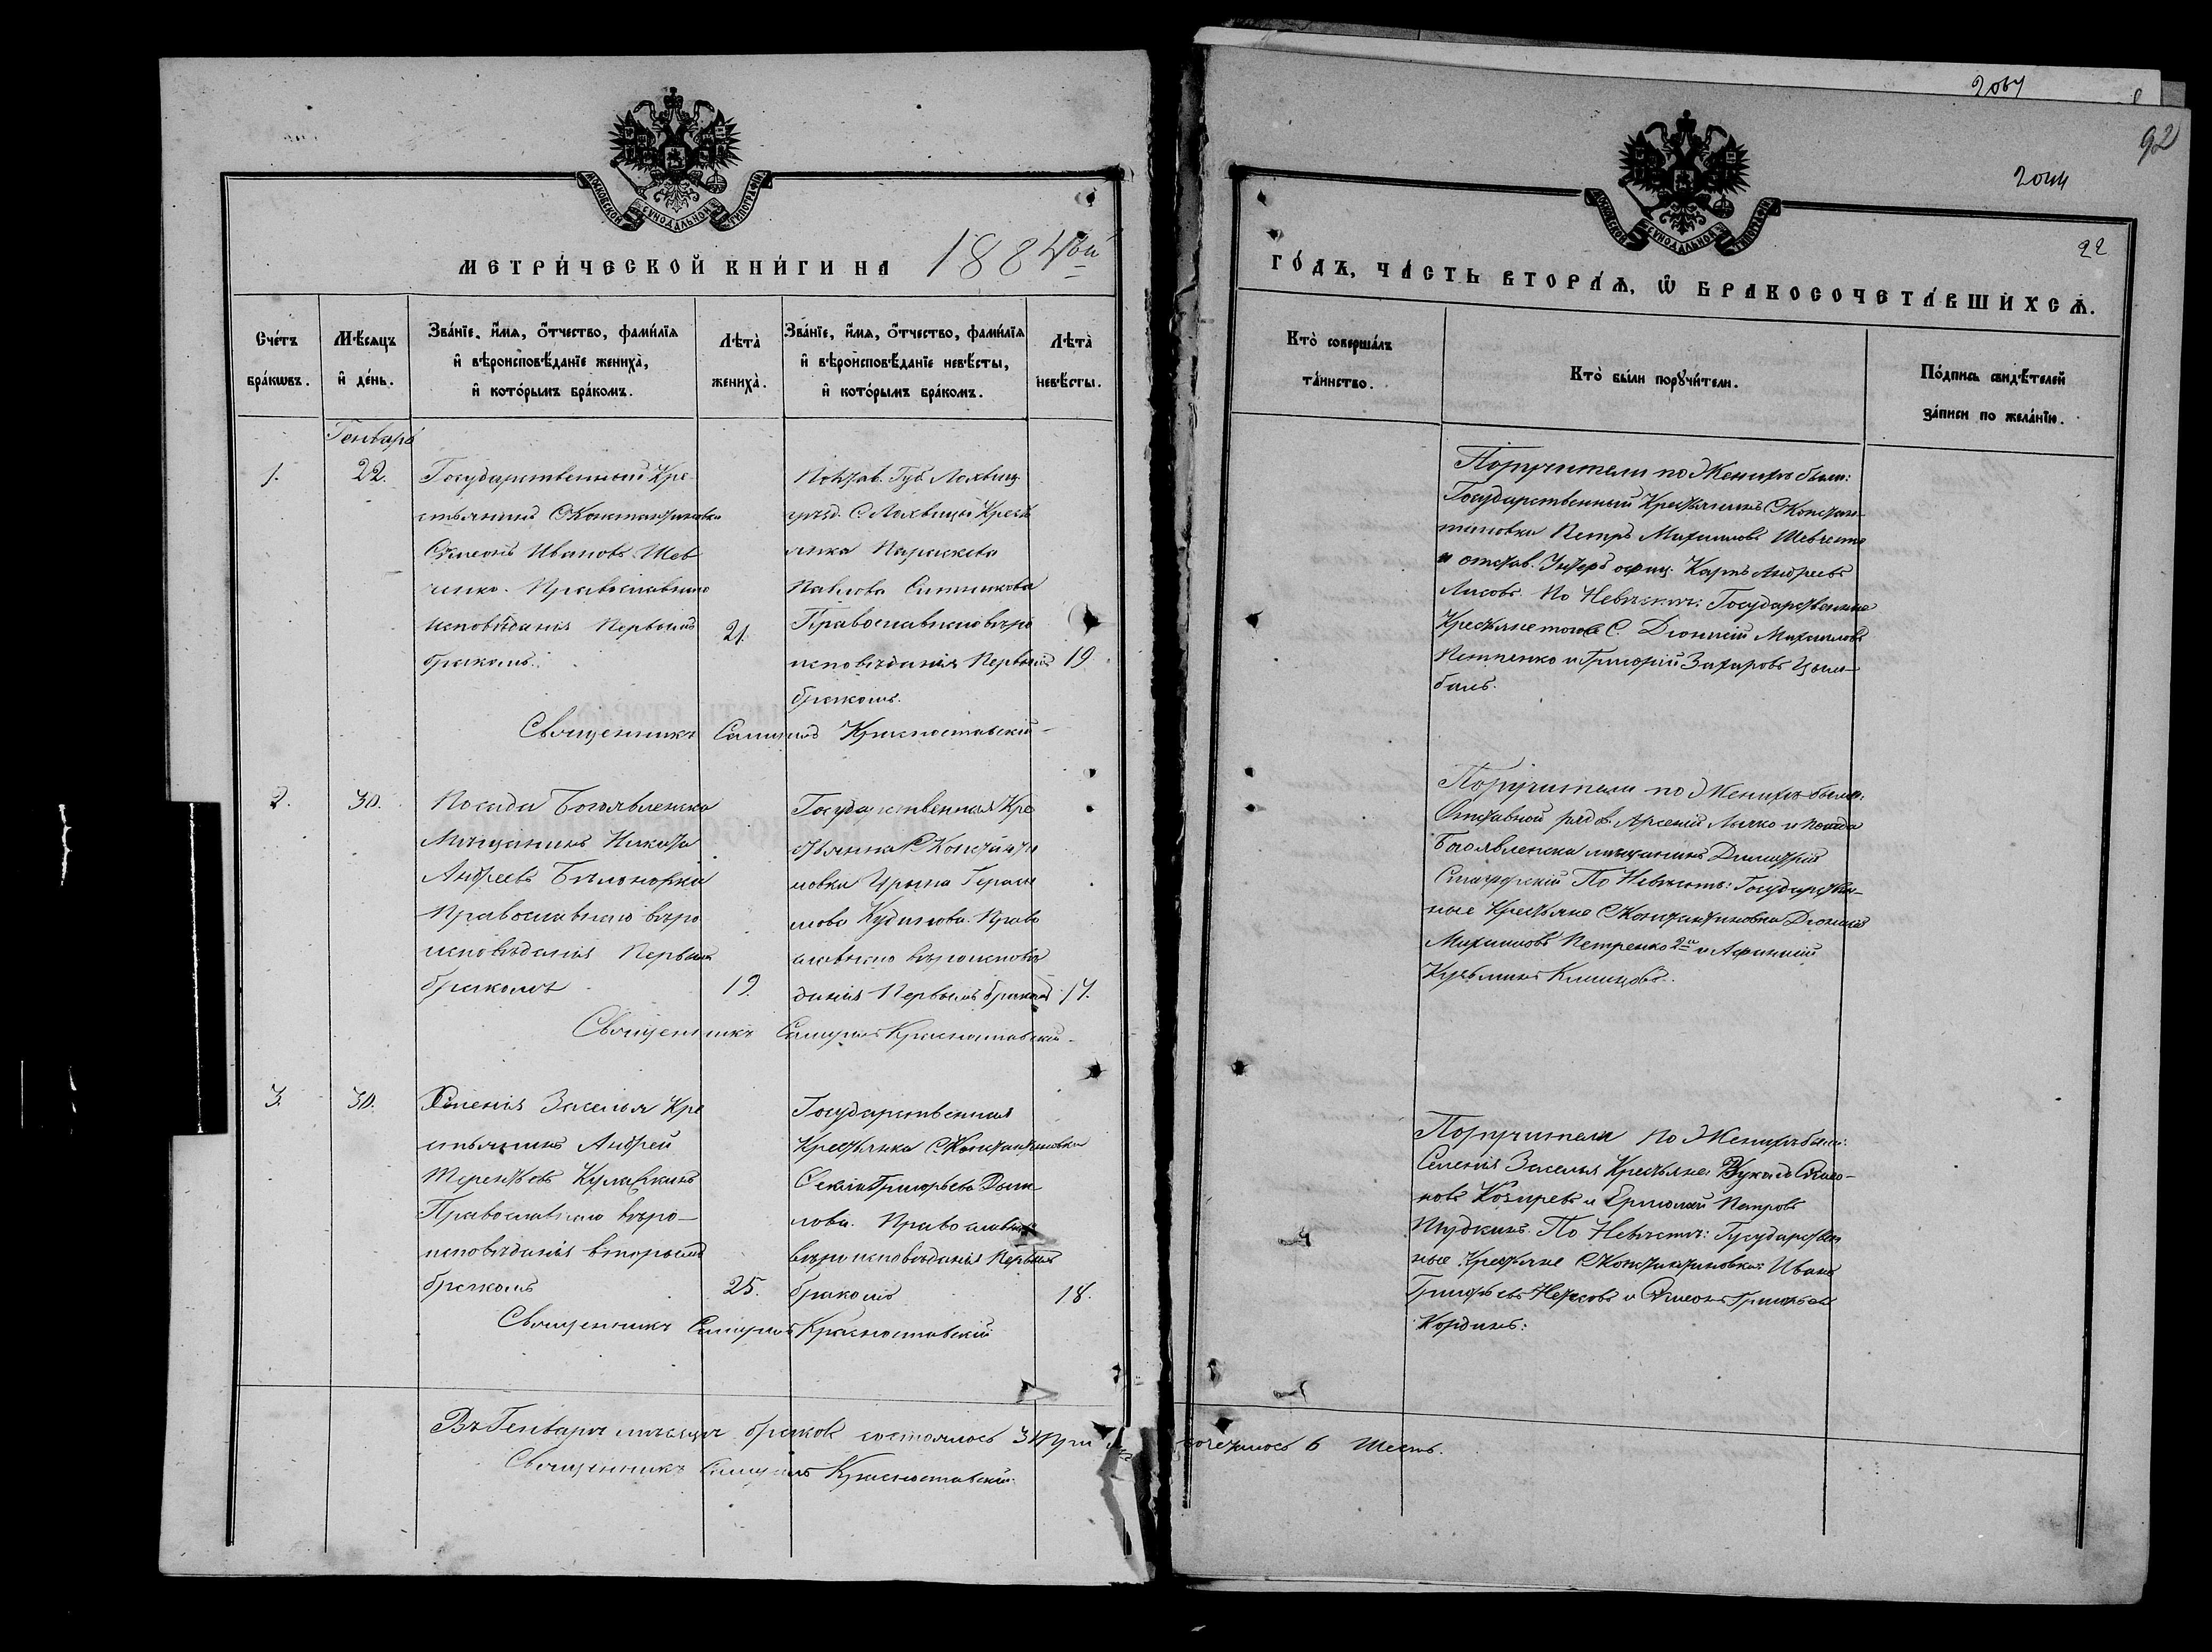 2044
92
МОСКОВСКОЙ СУНОДАЛЬНОЙ ТИПОГРАФІИ
МЕТРИ́ЧЕСКОЙ КНИ́ГИ НА 1884ый
Сче́тъ бра́кѡвъ.
Мѣ́сѧцъ и҆ де́нь.
Зва́нїе, и҆́мѧ, ѻ҆́тчество, фами́лїѧ
и҆ вѣроисповѣ́данїе жениха̀,
и҆ кото́рымъ бра́комъ.
Лѣта̀ жениха̀.
Зва́нїе, и҆́мѧ, ѻ҆́тчество, фами́лїѧ
и҆ вѣроисповѣ́данїе невѣ́сты,
и҆ кото́рымъ бра́комъ.
Лѣта̀ невѣ́сты.
Генваря
1.
22.
Государственный Кре-
стьянинъ С. Константиновки
Сѵмеонъ Ивановъ Шев
ченко. Православнаго
исповѣданія Первымъ
бракомъ.
21.
Полтав. Губ. Лохвиц
уѣзд. С. Лохвицы Кресть
янка Параскева
Павлова Ситникова
Православнаго вѣро
исповѣданія Первымъ
бракомъ.
19.
Священникъ Самуилъ Красноставскій
2.
30.
Посада Богоявленска
Мѣщанинъ Никита
Андреевъ
Православнаго вѣро
исповѣданія Первымъ
бракомъ
19.
Государственная Кре
стьянка С. Константи
новки Ирина Гераси
мова Кудинова. Право
славнаго вѣроисповѣ
данія Первымъ бракомъ
17.
Священникъ Самуилъ Красноставскій
3.
30.
Селенія Заселья Кре
стьянинъ Андрей
Терентьевъ
Православнаго вѣро-
исповѣданія вторымъ
бракомъ
25.
Государственная
Крестьянка С. Константиновки
Григорьева
Православнаго
вѣроисповѣданія Первымъ
бракомъ
18.
Священникъ Самуилъ Красноставскій
Въ Генварѣ мѣсяцѣ браковъ состоялось 3 три
Священникъ Самуилъ Красноставскій
92
2044
22
МОСКОВСКОЙ СУНОДАЛЬНОЙ ТИПОГРАФІИ
ГО́ДЪ, ЧА́СТЬ ВТОРА́Ѧ, Ѡ҆ БРАКОСОЧЕТА́ВШИХСѦ.
Кто̀ соверша́лъ та́инство.
Кто̀ бы́ли порꙋчи́тели.
По́дпись свидѣ́телей за́писи по жела́нїю.
Поручители по Женихѣ были:
Государственный Крестьянинъ С. Констан-
тиновки Петръ Михаиловъ Шевченко
и отстав. Унтеръ офиц. Карпъ Андреевъ
Лисовъ. По Невѣстѣ: Государственные
Крестьяне тогоже С. Діонисій Михаиловъ
Петренко и Григорій Захаровъ Цым-
балъ.
Поручители по Женихѣ были:
Отставной рядов. Арсеній и Посада
Богоявленска мѣщанинъ Димитрій
По Невѣстѣ: Государствен-
ные Крестьяне С. Константиновки Діонисій
Михаиловъ Петренко 2й и Афанасій
Кузьминъ
Поручители по Женихѣ были:
Селенія Заселья Крестьяне: Сѵмео-
новъ Козыревъ и Ермолай Петровъ
По Невѣстѣ: Государствен
ные Крестьяне С. Константиновки: Иванъ
Григорьевъ и Сѵмеонъ Григорьевъ
Кординъ:
сочеталось 6 Шесть.